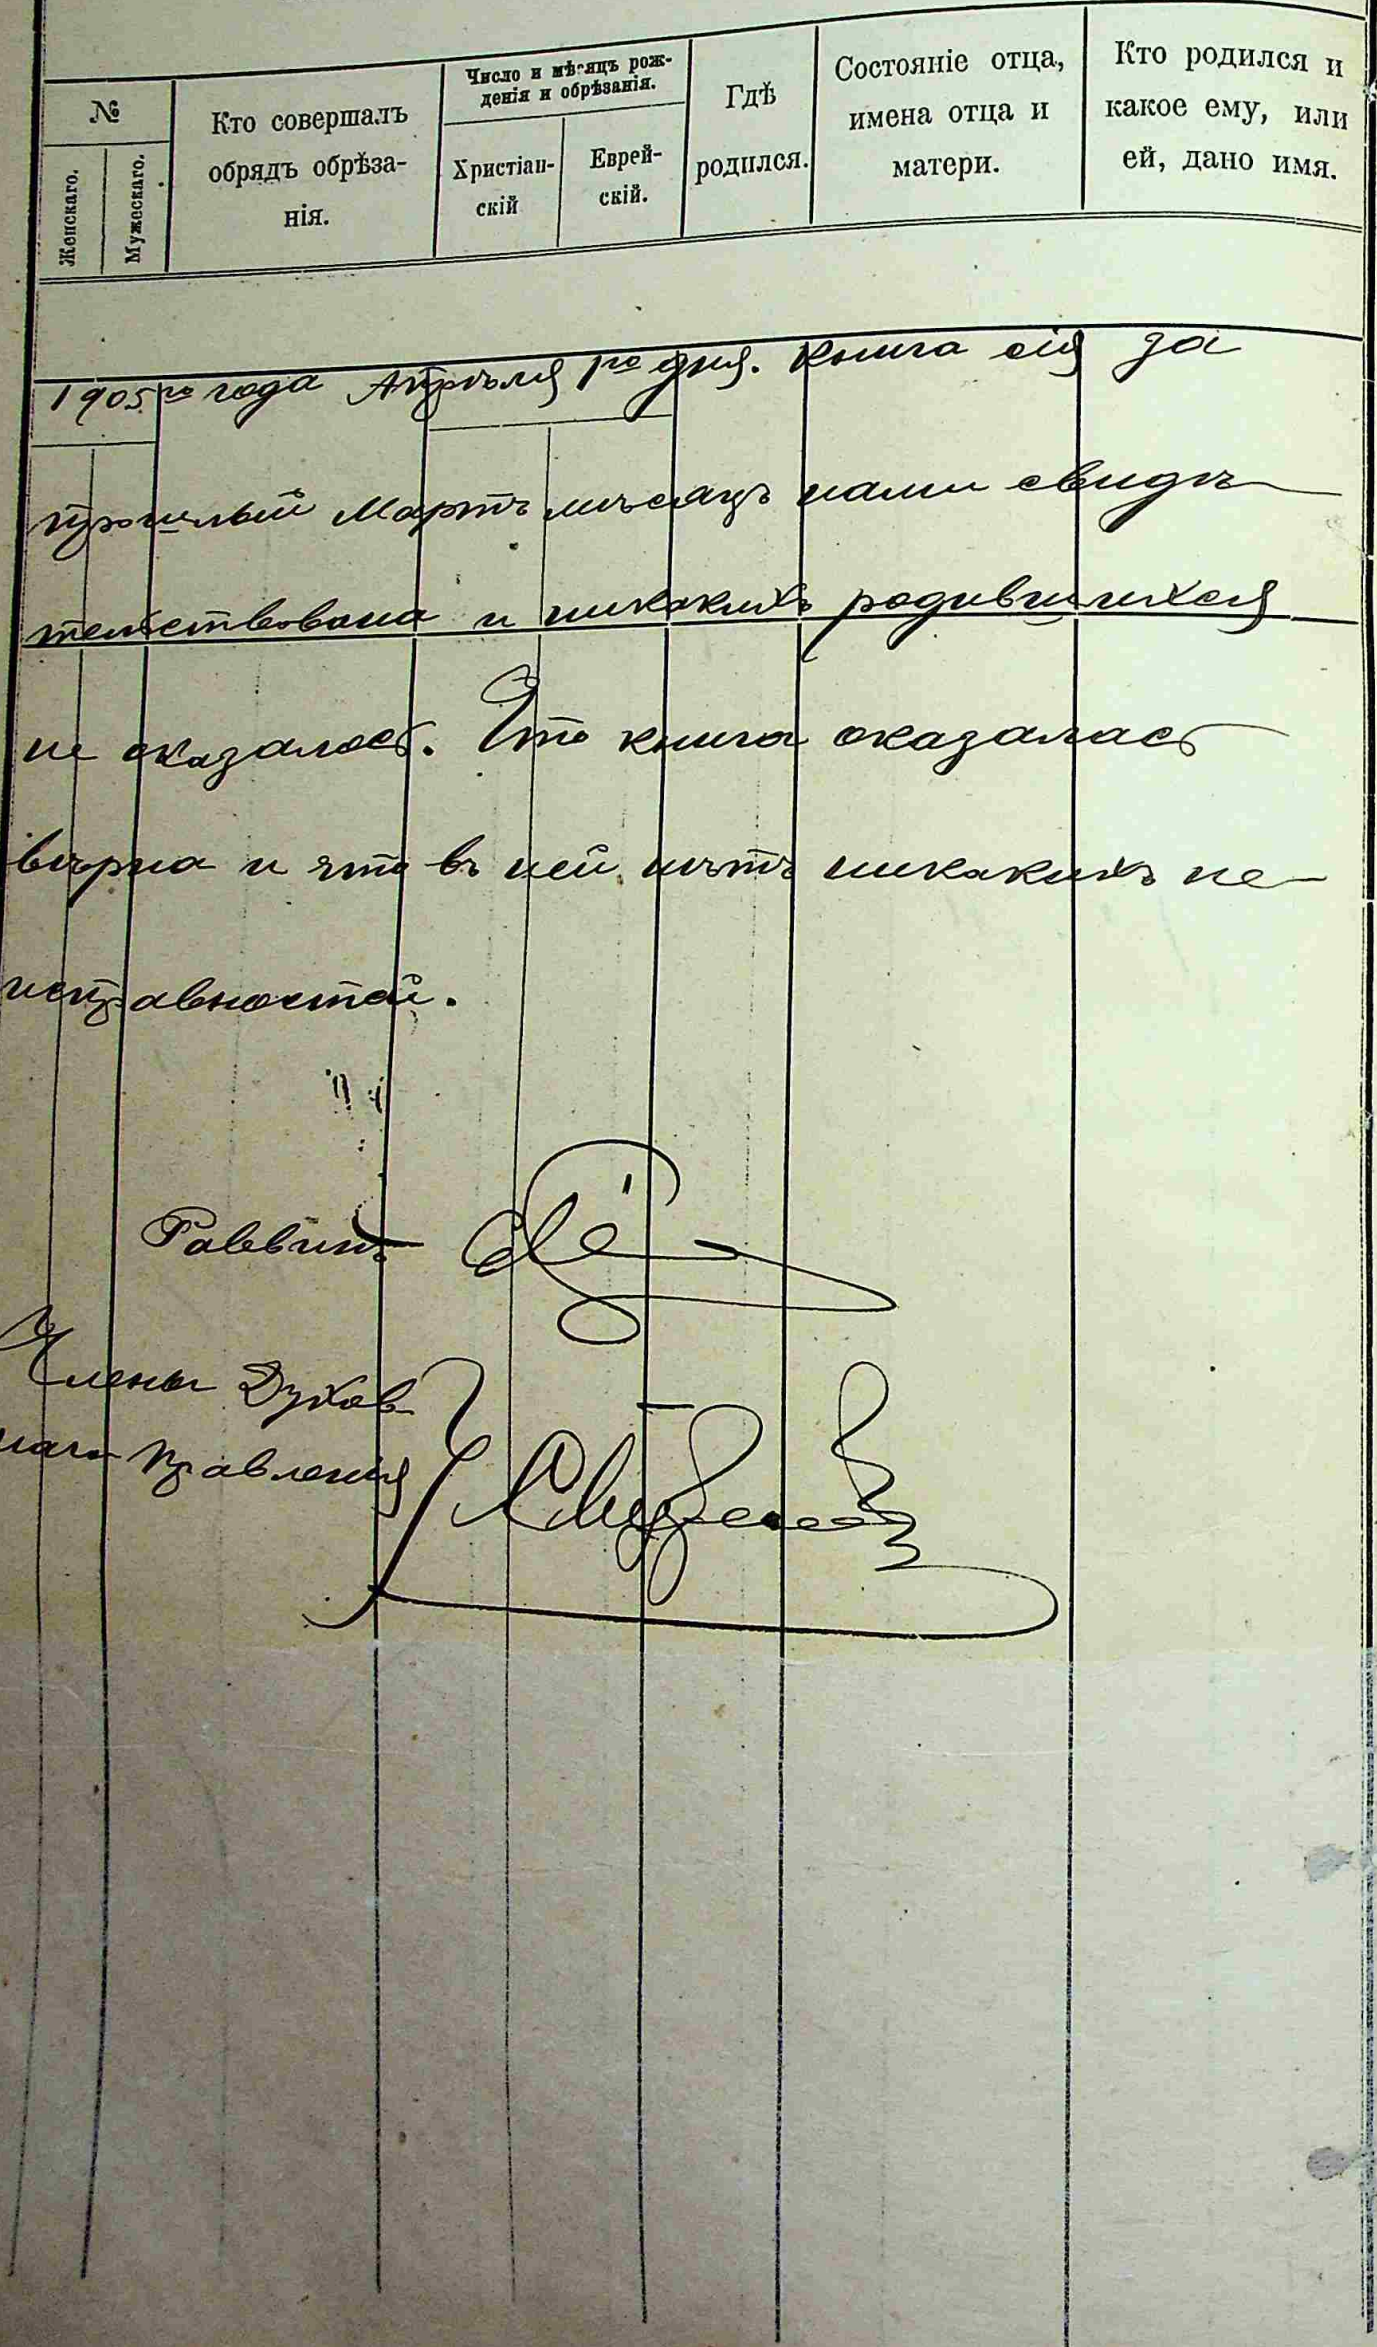 №
Женскаго.
Мужескаго.
Кто совершалъ
обрядъ обрѣза-
нія.
Число и мѣсяцъ рож-
денія и обрѣзанія.
Христіан-
скій
Еврей-
скій.
Гдѣ
родился.
Состояніе отца,
имена отца и
матери.
Кто родился и
какое ему, или
ей, дано имя.
1905 го года Апрѣля 1го дня. Книга сія за
прошлый Мартъ мѣсяцъ нами свидѣ
тельствована и никакихъ родившихся
не оказалось. Что книга оказалась
вѣрна и что въ ней нѣтъ никакихъ не-
исправностей.
Раввинъ
Члены Духов-
наго Правленія